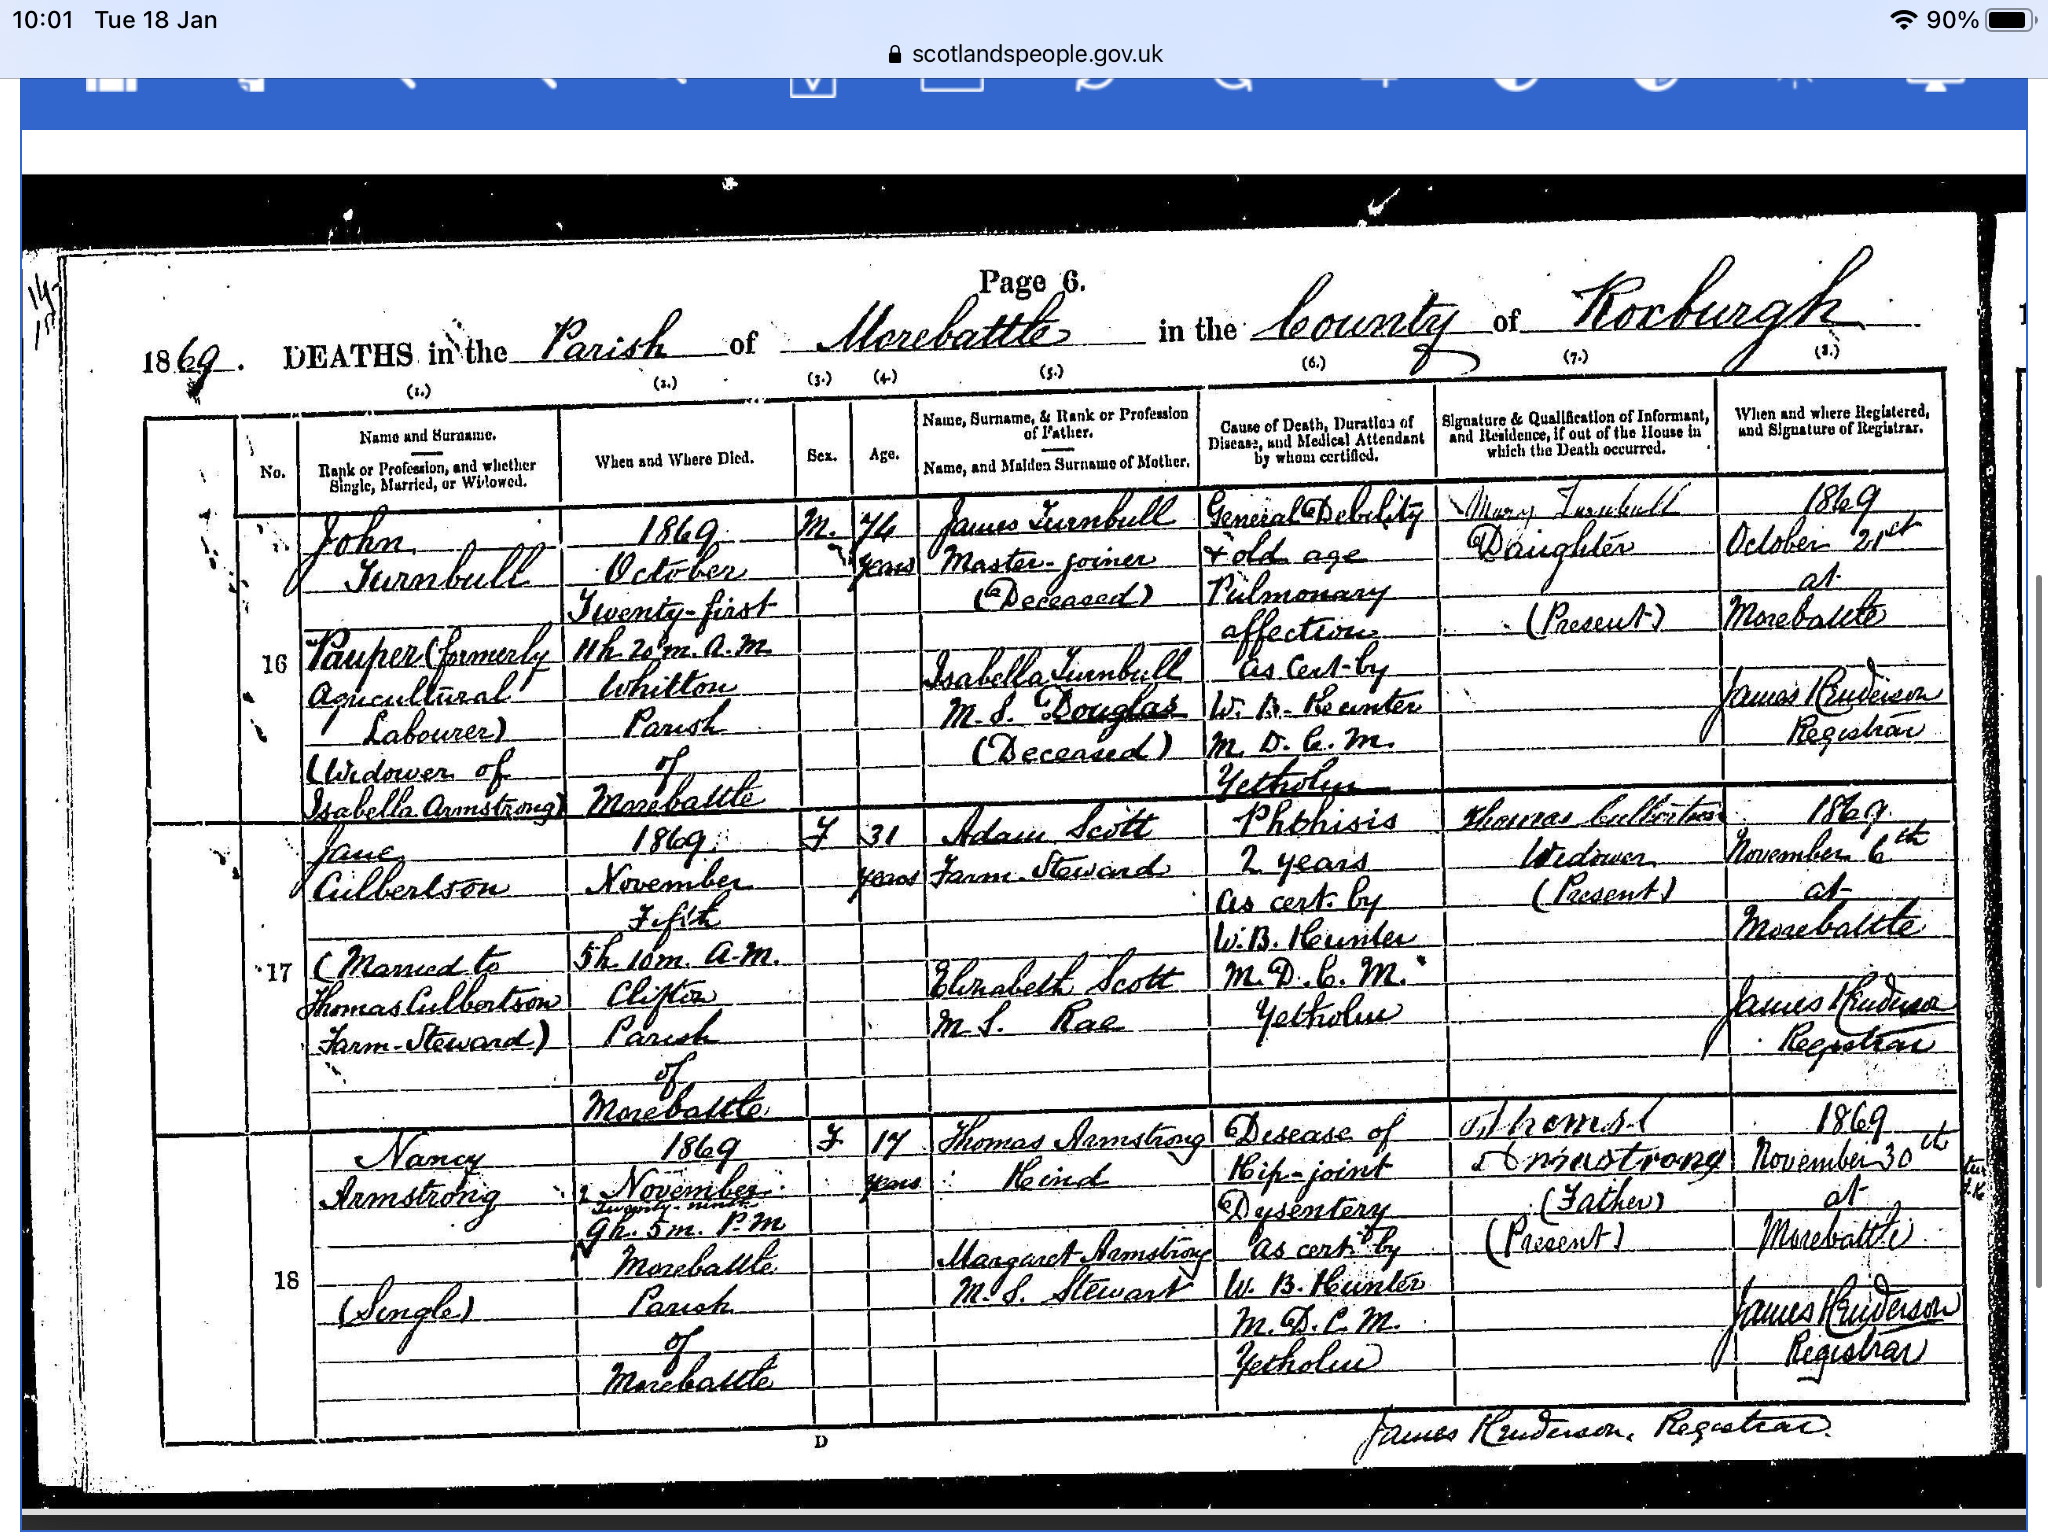 10:01 Tue 18 Jan
90%
scotlandspeople.gov.uk
Page 6.
1869. DEATHS in the Parish of Morebattle in the County of Roxburgh
(1.) (2.) (3.) (4.) (5.) (6.) (7.) (8.)
No.
Name and Surname.
Rank or Profession, and whether
Single, Married, or Widowed.
When and Where Died.
Sex.
Age.
Name, Surname, & Rank or Profession
of Father.
Name, and Maiden Surname of Mother.
Cause of Death, Duration of
Disease, and Medical Attendant
by whom certified.
Signature & Qualification of Informant,
and Residence, if out of the House in
which the Death occurred.
When and where Registered,
and Signature of Registrar.
16
John
Turnbull
Pauper (formerly
Agricultural
Labourer)
(Widower of
Isabella Armstrong)
1869
October
Twenty-first
11h. 20m. A.M.
Whitton
Parish
of
Morebattle
M.
74
years
James Turnbull
Master-joiner
(Deceased)
Isabella Turnbull
M.S. Douglas
(Deceased)
General Debility
& old age
Pulmonary
affection
as Cert. by
W. B. Hunter
M. D. C. M.
Yetholm
Mary Turnbull
Daughter
(Present)
1869
October 21st
at
Morebattle
James Henderson
Registrar
17
Jane
Culbertson
(Married to
Thomas Culbertson
Farm-Steward)
1869
November
Fifth
5h. 10m. A.M.
Clifton
Parish
of
Morebattle
F
31
years
Adam Scott
Farm-Steward
Elizabeth Scott
M.S. Rae
Phthisis
2 years
As cert. by
W. B. Hunter
M. D. C. M.
Yetholm
Thomas Culbertson
Widower
(Present)
1869
November 6th
at
Morebattle
James Henderson
Registrar
18
Nancy
Armstrong
(Single)
1869
November
Twenty-ninth
9h. 5m. P.M
Morebattle
Parish
of
Morebattle
F
17
years
Thomas Armstrong
Hind
Margaret Armstrong
M.S. Stewart
Disease of
Hip-joint
Dysentery
As cert. by
W. B. Hunter
M. D. C. M.
Yetholm
Armstrong
(Father)
(Present)
1869
November 30th
at
Morebattle
James Henderson
Registrar
D
James Henderson, Registrar.